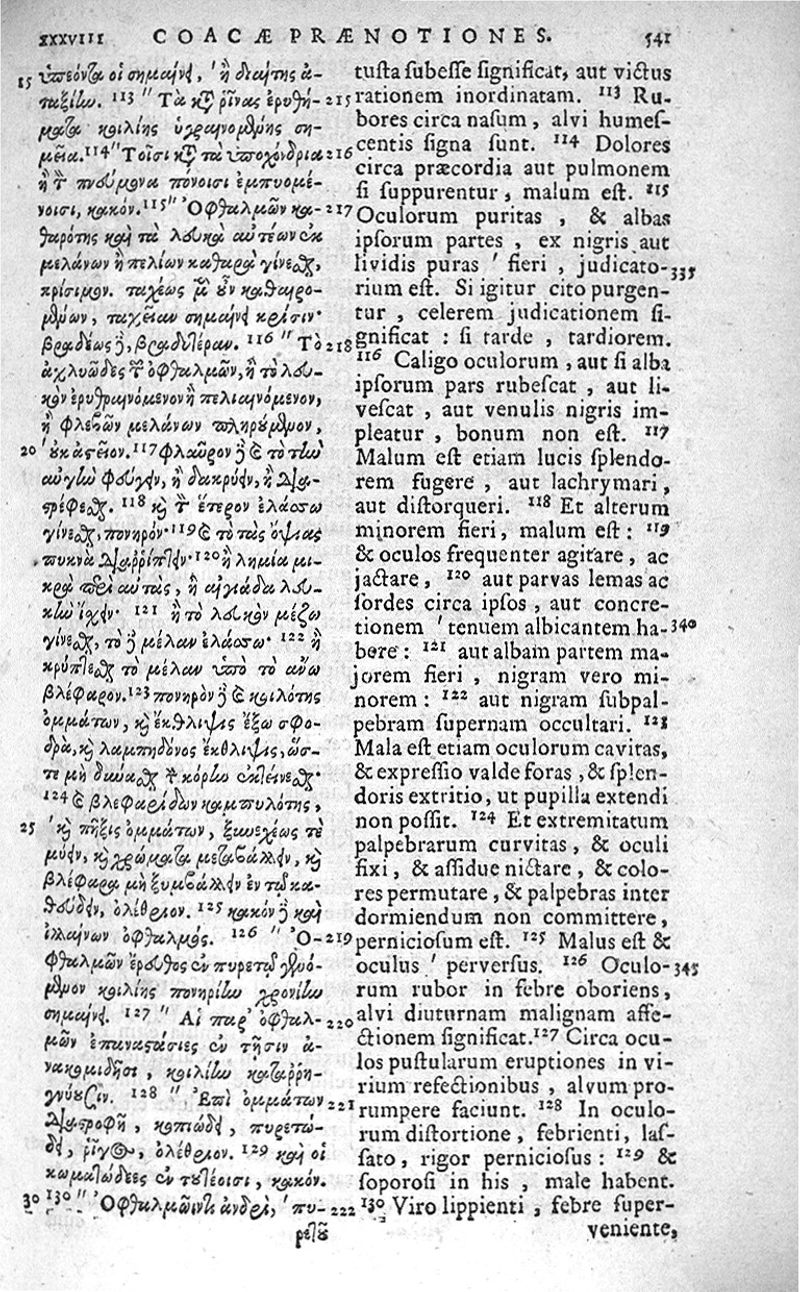 XXXVIII COACÆ PRÆNOTIONES. 541
15 ὑπεόντα οἱ σημαίνει, ἢ διαίτης ἀ-
ταξίην. 113 " Τὰ κατὰ ῥῖνας ἐρυθή- 215
ματα κοιλίης ὑγραινομένης ση-
μεῖα. 114 " Τοῖσι κατὰ τὰ ὑποχόνδρια 216
ἢ τὸν πνούμονα πόνοισι ἐμπυομέ-
νοισι, κακόν. 115 " Ὀφθαλμῶν κα- 217
θαρότης καὶ τὰ λευκὰ αὐτέων ἐκ
μελάνων ἢ πελίων καθαρὰ γίνεσθαι,
κρίσιμον. ταχέως μὲν οὖν καθαιρο-
μένων, ταχεῖαν σημαίνει κρίσιν·
βραδέως δὲ, βραδυτέραν. 116 " Τὸ 218
ἀχλυῶδες τῶν ὀφθαλμῶν, ἢ τὸ λευ-
κὸν ἐρυθραινόμενον ἢ πελιαινόμενον,
ἢ φλεβῶν μελάνων πληρούμενον,
20 ' οὐκ ἀστεῖον. 117 φλαῦρον δὲ καὶ τὸ τὴν
αὐγὴν φεύγειν, ἢ δακρύειν, ἢ δια-
στρέφεσθαι. 118 καὶ τὸν ἕτερον ἐλάσσω
γίνεσθαι, πονηρόν· 119 καὶ τὸ τὰς ὄψιας
πυκνὰ διαῤῥίπτειν· 120 ἢ λημία μι-
κρὰ περὶ αὐτὰς, ἢ αἰγιάδα λευ-
κὴν ἴσχειν· 121 ἢ τὸ λευκὸν μέζω
γίνεσθαι, τὸ δὲ μέλαν ἐλάσσω· 122 ἢ
κρύπτεσθαι τὸ μέλαν ὑπὸ τὸ ἄνω
βλέφαρον. 123 πονηρὸν δὲ καὶ κοιλότης
ὀμμάτων, καὶ ἔκθλιψις ἔξω σφο-
δρὰ, καὶ λαμπηδόνος ἔκθλιψις, ὥσ-
τε μὴ δύνασθαι τὴν κόρην ἐκτείνεσθαι·
124 καὶ βλεφαρίδων καμπυλότης,
25 ' καὶ πῆξις ὀμμάτων, ξυνεχέως τε
μύειν, καὶ χρώματα μεταβάλλειν, καὶ
βλέφαρα μὴ ξυμβάλλειν ἐν τῷ κα-
θεύδειν, ὀλέθριον. 125 κακὸν δὲ καὶ
ἰλλαίνων ὀφθαλμός. 126 " Ὀ- 219
φθαλμῶν ἔρευθος ἐν πυρετῷ γενό-
μενον κοιλίης πονηρίην χρονίην
σημαίνει. 127 " Αἱ παρ' ὀφθαλ- 220
μῶν ἐπαναστάσιες ἐν τῇσιν ἀ-
νακομιδῇσι, κοιλίην καταῤῥη-
γνύουσιν. 128 " Ἐπὶ ὀμμάτων 221
διαστροφῇ, κοπιώδει, πυρετώ-
δει, ῥῖγος, ὀλέθριον. 129 καὶ οἱ
κωματώδεες ἐν τουτέοισι, κακόν.
30 130 " Ὀφθαλμιῶντι ἀνδρὶ, ' πυ- 222
ρετοῦ
tusta subesse significat, aut victus
rationem inordinatam. 113 Ru-
bores circa nasum, alvi humes-
centis signa sunt. 114 Dolores
circa præcordia aut pulmonem
si suppurentur, malum est. 115
Oculorum puritas, & albas
ipsorum partes, ex nigris aut
lividis puras ' fieri, judicato- 335
rium est. Si igitur cito purgen-
tur, celerem judicationem si-
gnificat: si tarde, tardiorem.
116 Caligo oculorum, aut si alba
ipsorum pars rubescat, aut li-
vescat, aut venulis nigris im-
pleatur, bonum non est. 117
Malum est etiam lucis splendo-
rem fugere, aut lachrymari,
aut distorqueri. 118 Et alterum
minorem fieri, malum est: 119
& oculos frequenter agitare, ac
jactare, 120 aut parvas lemas ac
sordes circa ipsos, aut concre-
tionem ' tenuem albicantem ha- 340
bere: 121 aut albam partem ma-
jorem fieri, nigram vero mi-
norem: 122 aut nigram subpal-
pebram supernam occultari. 123
Mala est etiam oculorum cavitas,
& expressio valde foras, & splen-
doris extritio, ut pupilla extendi
non possit. 124 Et extremitatum
palpebrarum curvitas, & oculi
fixi, & assidue nictare, & colo-
res permutare, & palpebras inter
dormiendum non committere,
perniciosum est. 125 Malus est &
oculus ' perversus. 126 Oculo- 345
rum rubor in febre oboriens,
alvi diuturnam malignam affe-
ctionem significat. 127 Circa ocu-
los pustularum eruptiones in vi-
rium refectionibus, alvum pro-
rumpere faciunt. 128 In oculo-
rum distortione, febrienti, las-
sato, rigor perniciosus: 129 &
soporosi in his, male habent.
130 Viro lippienti, febre super-
veniente,